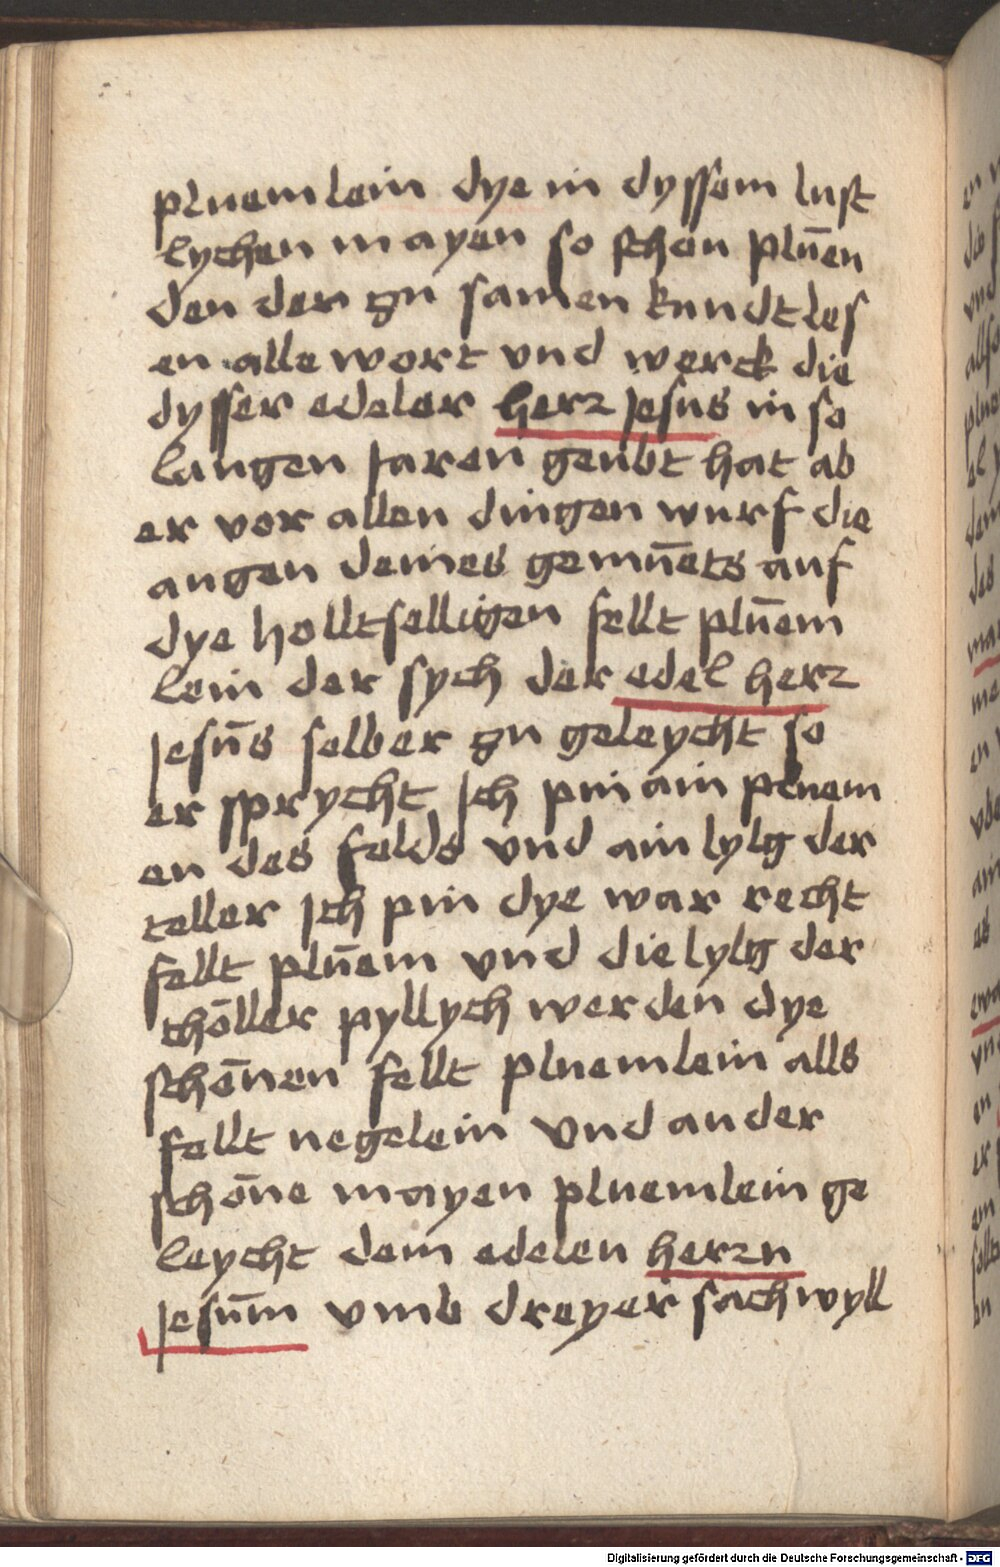 pluemlein dye in dyssem lust
lychen mayen so schon plūen
den der zu samen kundt les
en alle wort vnd werck die
dysser edeler herz Jesus in so
langen Jaren geubt hat ab
er vor allen dingen wurf die
augen deines gemūets auf
dye holltselligen fellt plūem
lein der sych der edel herz
Jesūs selber zu geleycht so
er sprycht Ich pin ain pluem
en des felds vnd ain lylg der
teller Ich pin dye war recht
fellt plūem vnd die lylg der
thōller pyllych werden dye
schōnen fellt pluemlein alls
fellt negelein vnd ander
schōne mayen pluemlein ge
leycht dem edelen herzn
Jesūm vmb dreyer sach wyll
Digitalisierung gefördert durch die Deutsche Forschungsgemeinschaft - DFG